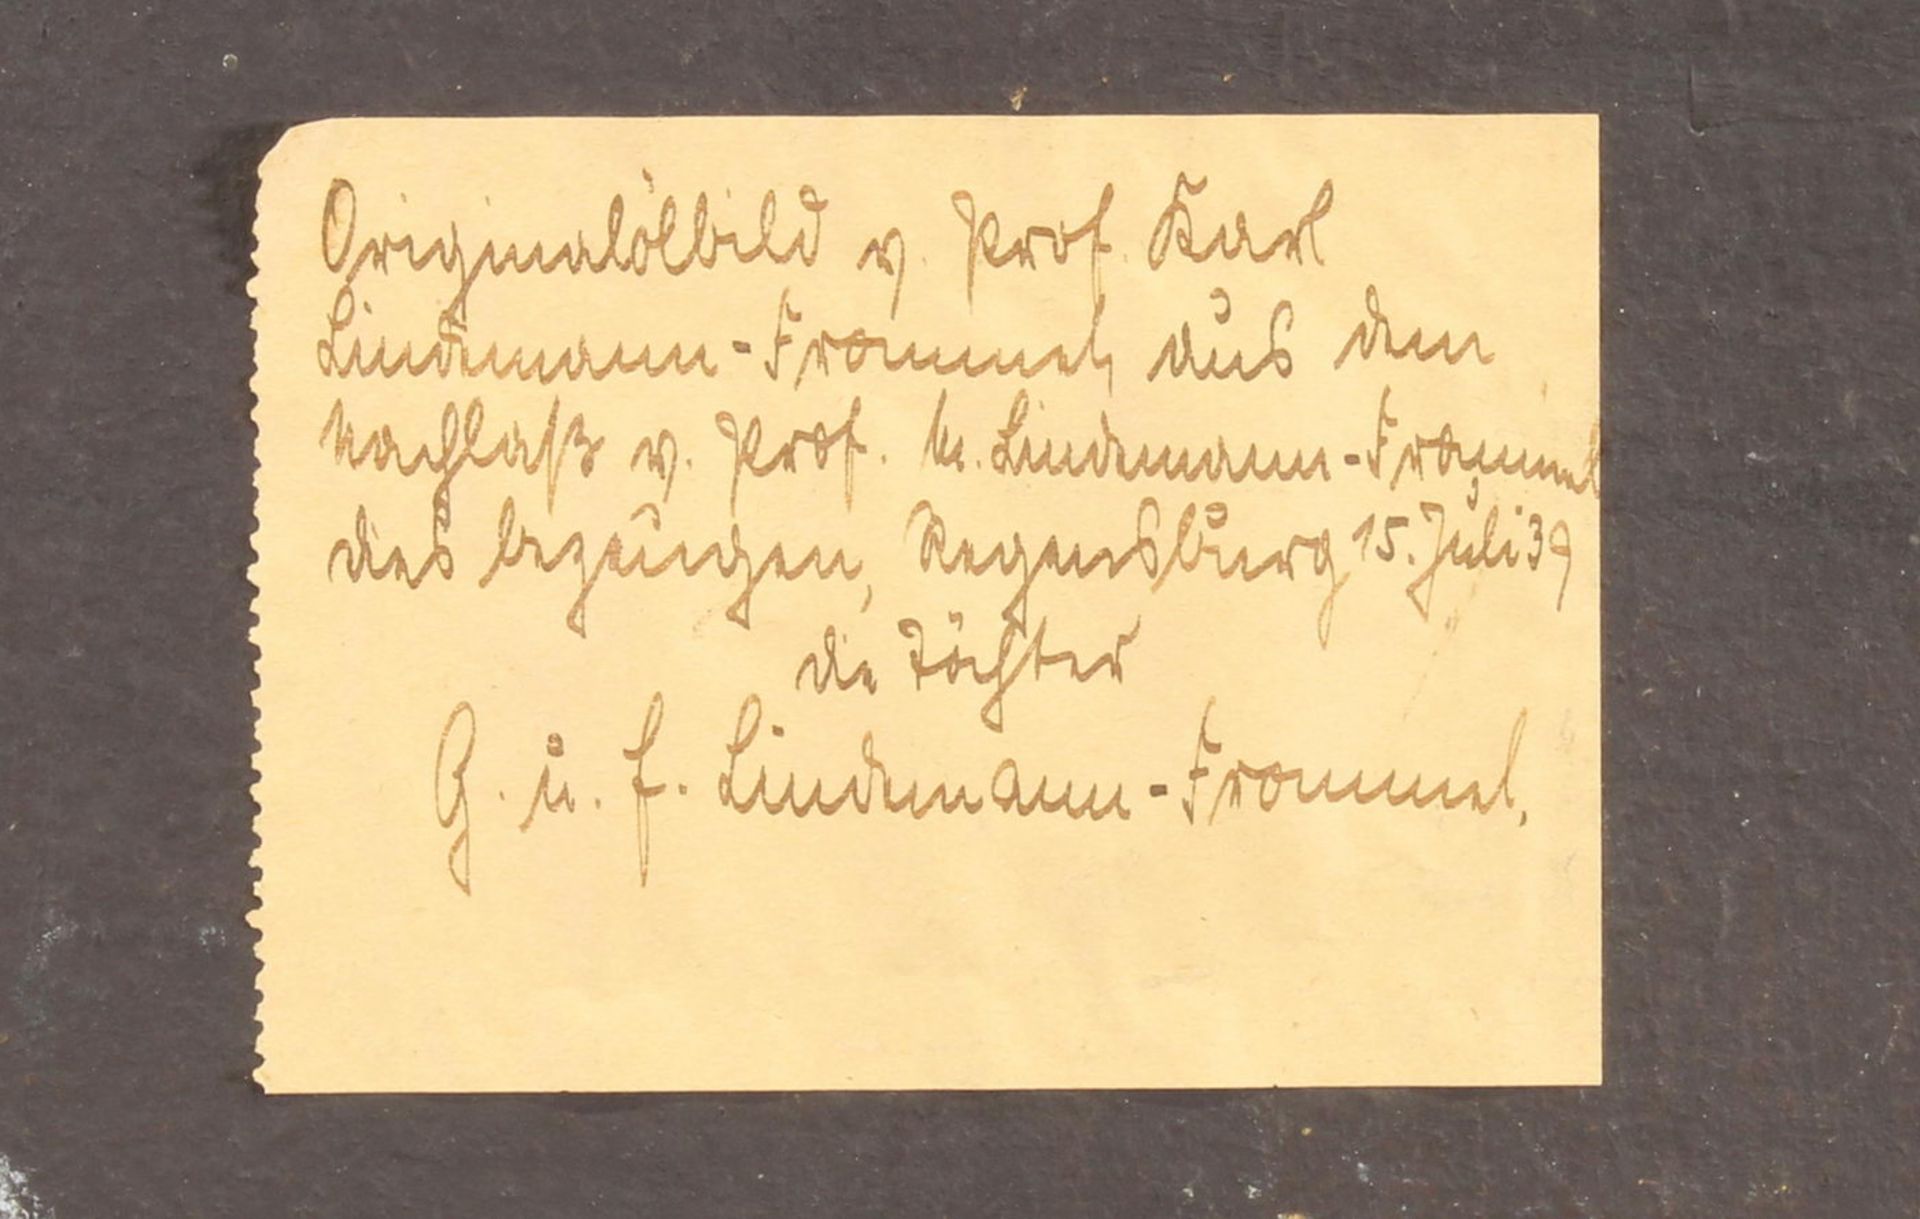 Originalölbild v. Prof. Karl
Lindemann-Frommel, aus dem
Nachlaß v. Prof. M. Lindemann-Frommel
dies bezeugen, Regensburg 15. Juli 39
die Töchter
G. u. E. Lindemann-Frommel.